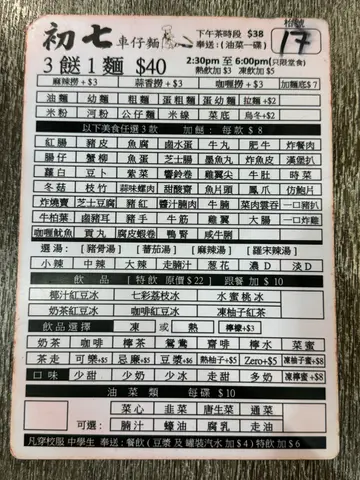 初七 車仔麵
下午茶時段 $38
奉送:(油菜一碟)
枱號
17
3餸1麵 $40
2:30pm 至 6:00pm(只限堂食)
熱飲加$3 凍飲加$5
麻辣撈+$3 蒜香撈+$3 咖喱撈+$3 加麵底$7
油麵 幼麵 粗麵 蛋粗麵 蛋幼麵 拉麵+$2
米粉 河粉 公仔麵 米線 菜底 烏冬+$2
以下美食任選3款 加餸:每款$8
紅腸 豬皮 魚腐 鹵水蛋 牛丸 肥牛 炸餐肉
腸仔 蟹柳 魚蛋 芝士腸 墨魚丸 炸魚皮 漢堡扒
蘿白 豆卜 紫菜 響鈴卷 雞翼尖 牛肚 時菜
冬菇 枝竹 蒜味螺肉 甜酸齋 魚片頭 鳳爪 仿鮑片
炸燒賣 芝士豆腐 豬紅 醬汁腩肉 牛腩 菜肉雲吞 一口豬扒
牛柏葉 鹵豬耳 豬手 牛筋 雞翼 大腸 一口炸雞
咖喱魷魚 貢丸 腐皮蝦卷 鴨腎 咸牛脷
選湯: [豬骨湯] [蕃茄湯] [麻辣湯] [羅宋辣湯]
小辣 中辣 大辣 走腩汁 葱花 濃D 淡D
飲品 [特飲 原價$22] 跟餐加$10
椰汁紅豆冰 七彩荔枝冰 水蜜桃冰
奶茶紅豆冰 咖啡紅豆冰 凍柚子紅茶
飲品選擇 凍 或 熱 檸檬+$3
奶茶 咖啡 檸茶 鴛鴦 齋啡 檸水 菜蜜
茶走 可樂+$5 忌廉+$5 豆漿+$6 熱柚子+$5 Zero+$5 凍柚子蜜+$8
口味 少甜 少奶 少冰 走甜 多奶 凍檸蜜+$8
油菜類 每碟$10
菜心 韮菜 唐生菜 通菜
可選: 腩汁 蠔油 腐乳 走油
凡穿校服中學生 奉送:餐飲(豆漿及罐裝汽水加$4)特飲加$6